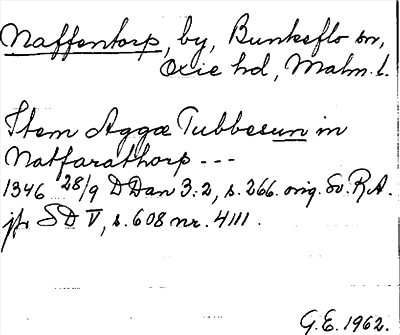 Naffentorp, by, Bunkeflo sn,
Oxie hd, Malm. l.
Item Aggæ Tubbesun in
Natfarathorp ---
1346 28/9 DDan 3:2, s. 266. orig. Sv. R.A.
jfr SD V, s. 608 nr. 4111.
G.E. 1962.